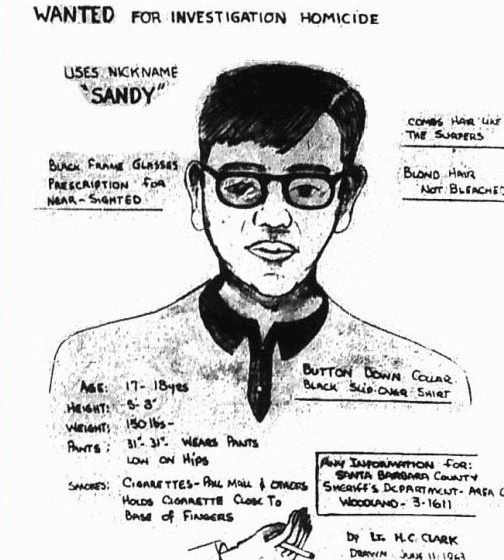 WANTED FOR INVESTIGATION HOMICIDE
USES NICKNAME
"SANDY"
COMBS HAIR LIKE
THE SURFERS
BLACK FRAME GLASSES
PRESCRIPTION FOR
NEAR-SIGHTED
BLOND HAIR
NOT BLEACHED
BUTTON DOWN COLLAR
BLACK SLIP-OVER SHIRT
AGE: 17-18yrs
HEIGHT: 5-8"
WEIGHT: 150 lbs-
PANTS: 31"-31"- WEARS PANTS
LOW ON HIPS
SMOKES: CIGARETTES-PALL MALL & OTHERS
HOLDS CIGARETTE CLOSE TO
BASE OF FINGERS
ANY INFORMATION FOR:
SANTA BARBARA COUNTY
SHERIFF'S DEPARTMENT- AREA C
WOODLAND- 3-1611
by Lt. H.C. CLARK
DRAWN 11, 1963